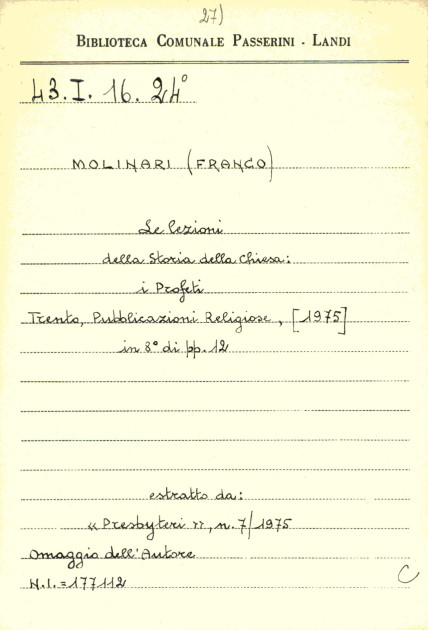 27)
BIBLIOTECA COMUNALE PASSERINI - LANDI
43.I. 16. 24°
MOLINARI (FRANCO)
Le lezioni
della Storia della Chiesa:
i Profeti
Trento, Pubblicazioni Religiose, [1975]
in 8° di pp. 12
estratto da:
« Presbyteri », n. 7/1975
Omaggio dell'Autore
N.I. = 177112
C